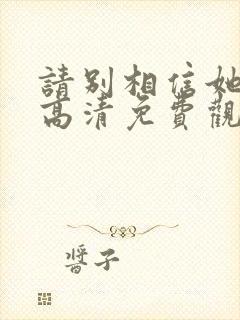 請別相信她
高清免費觀
醬子